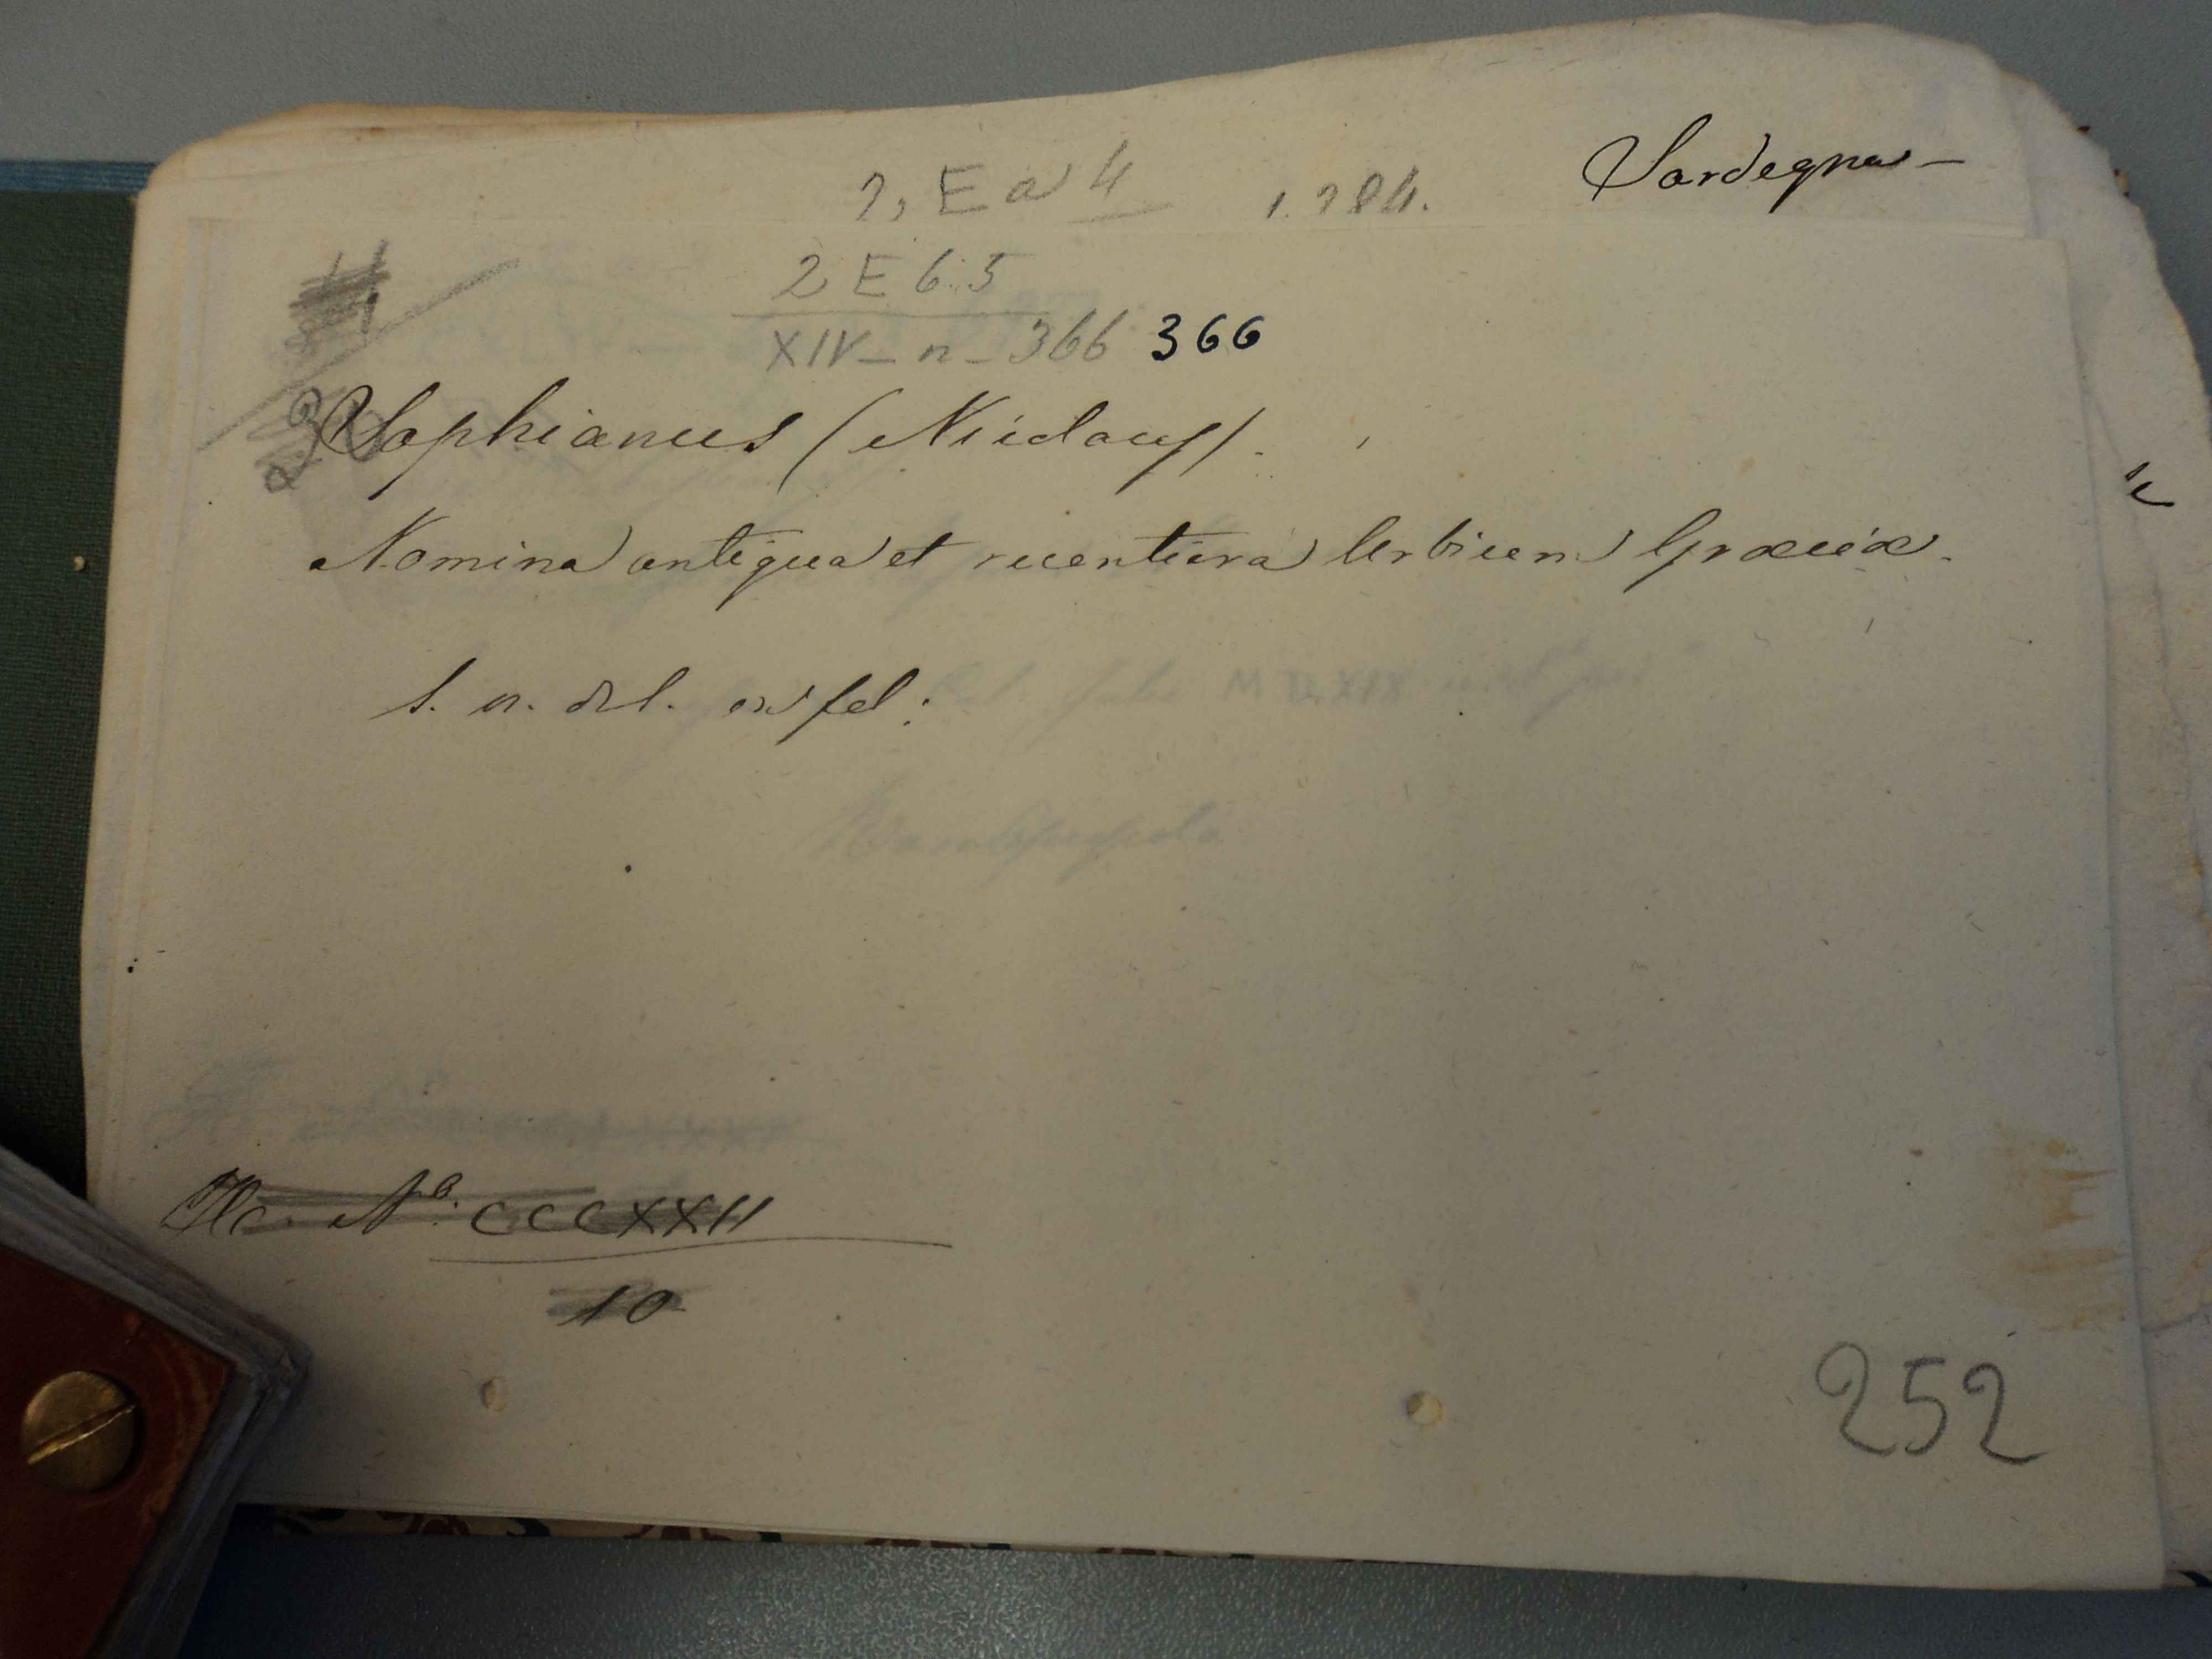 Sardegna -
2, E a 4 1.284.
2 E 6.5
XIV - n - 366 366
Sophianus (Nicolaus).
Nomina antiqua et recentiora Urbium Græciæ.
s. n. d. l. in fol:
Na. N.º CCCXXII
10
252